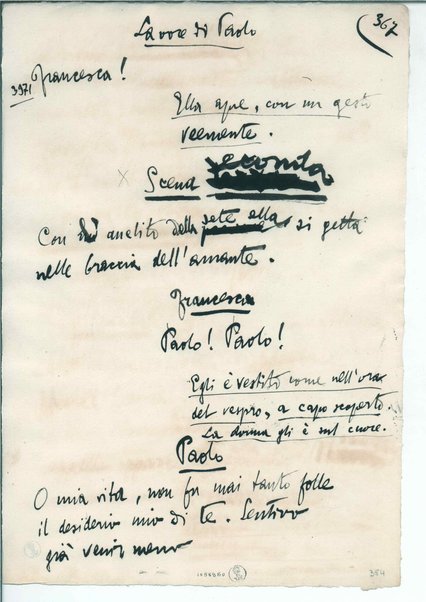 La voce di Paolo
367
Francesca!
3971
Ella apre, con un gesto
veemente.
x Scena seconda
Con anelito della sete ella si getta
nelle braccia dell'amante.
Francesca
Paolo! Paolo!
Egli è vestito come nell'ora
del vespro, a capo scoperto.
La donna gli è sul cuore.
Paolo
O mia vita, non fu mai tanto folle
il desiderio mio di te. Sentivo
già venir meno
354